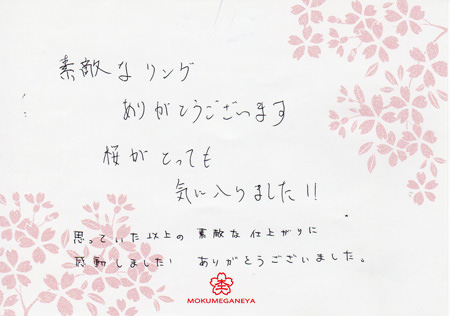 素敵なリング
ありがとうございます
桜がとっても
気に入りました!!
思っていた以上の 素敵な仕上がりに
感動しました! ありがとうございました。
MOKUMEGANEYA